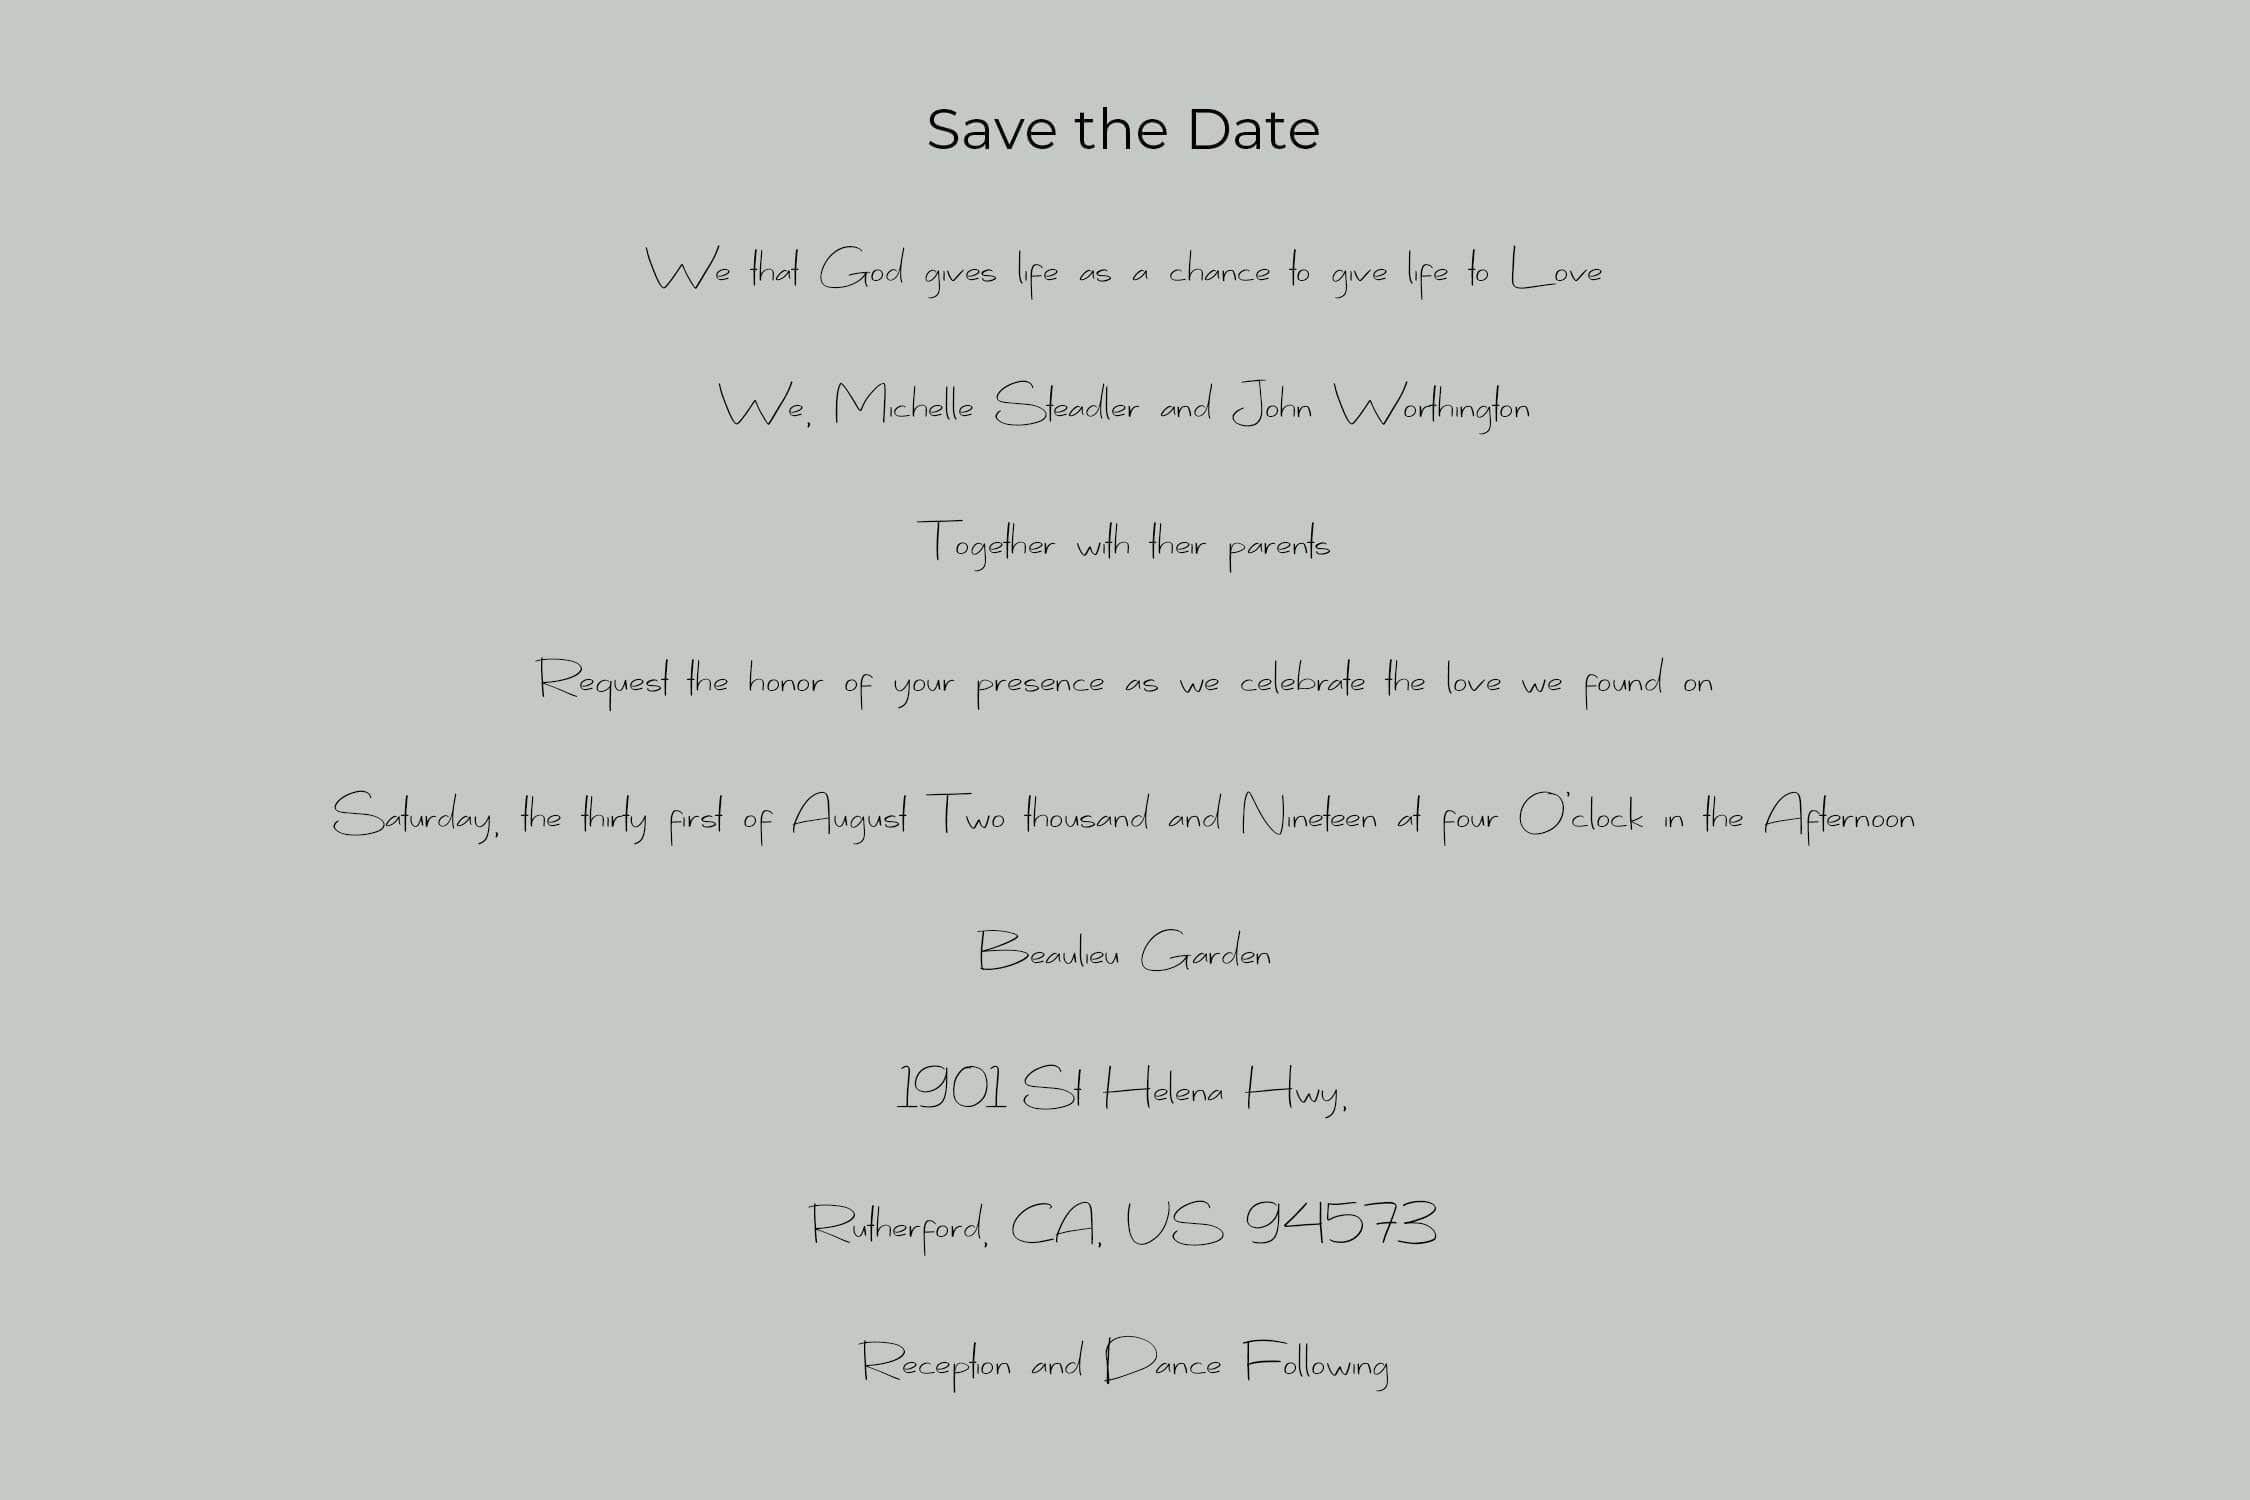 Save the Date
We that God gives life as a chance to give life to Love
We, Michelle Steadler and John Worthington
Together with their parents
Request the honor of your presence as we celebrate the love we found on
Saturday, the thirty first of August Two thousand and Nineteen at four O'clock in the Afternoon
Beaulieu Garden
1901 St Helena Hwy,
Rutherford, CA, US 94573
Reception and Dance Following